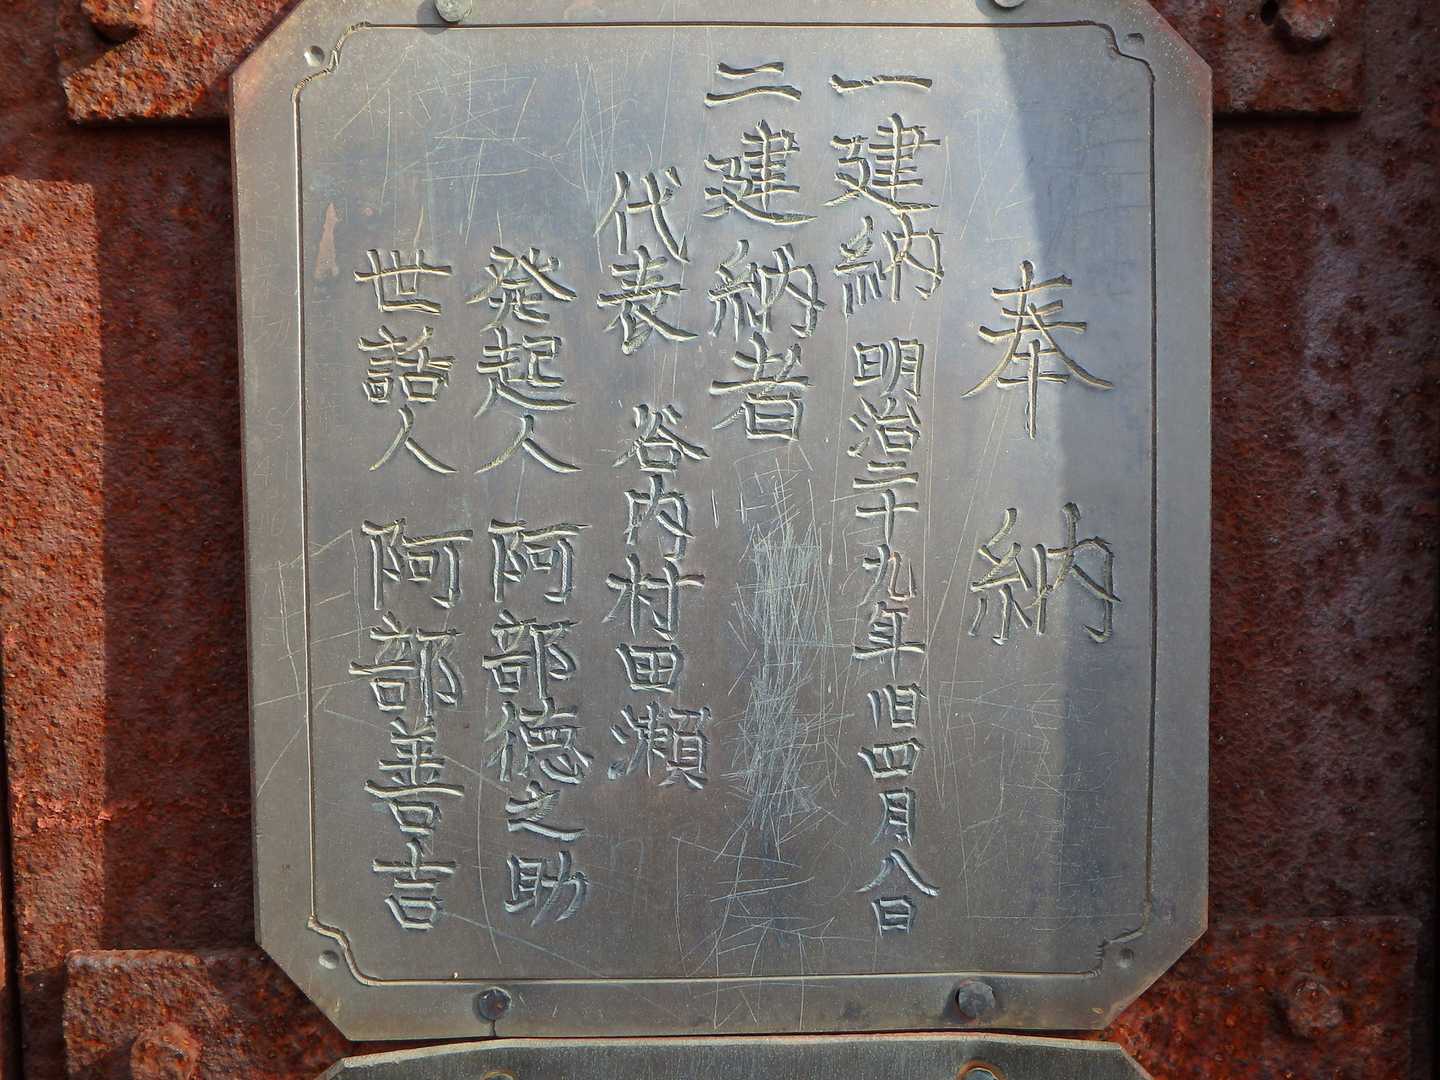 奉納
一建納 明治二十九年旧四月八日
二建納者
代表 谷内村田瀬
発起人 阿部徳之助
世話人 阿部善吉